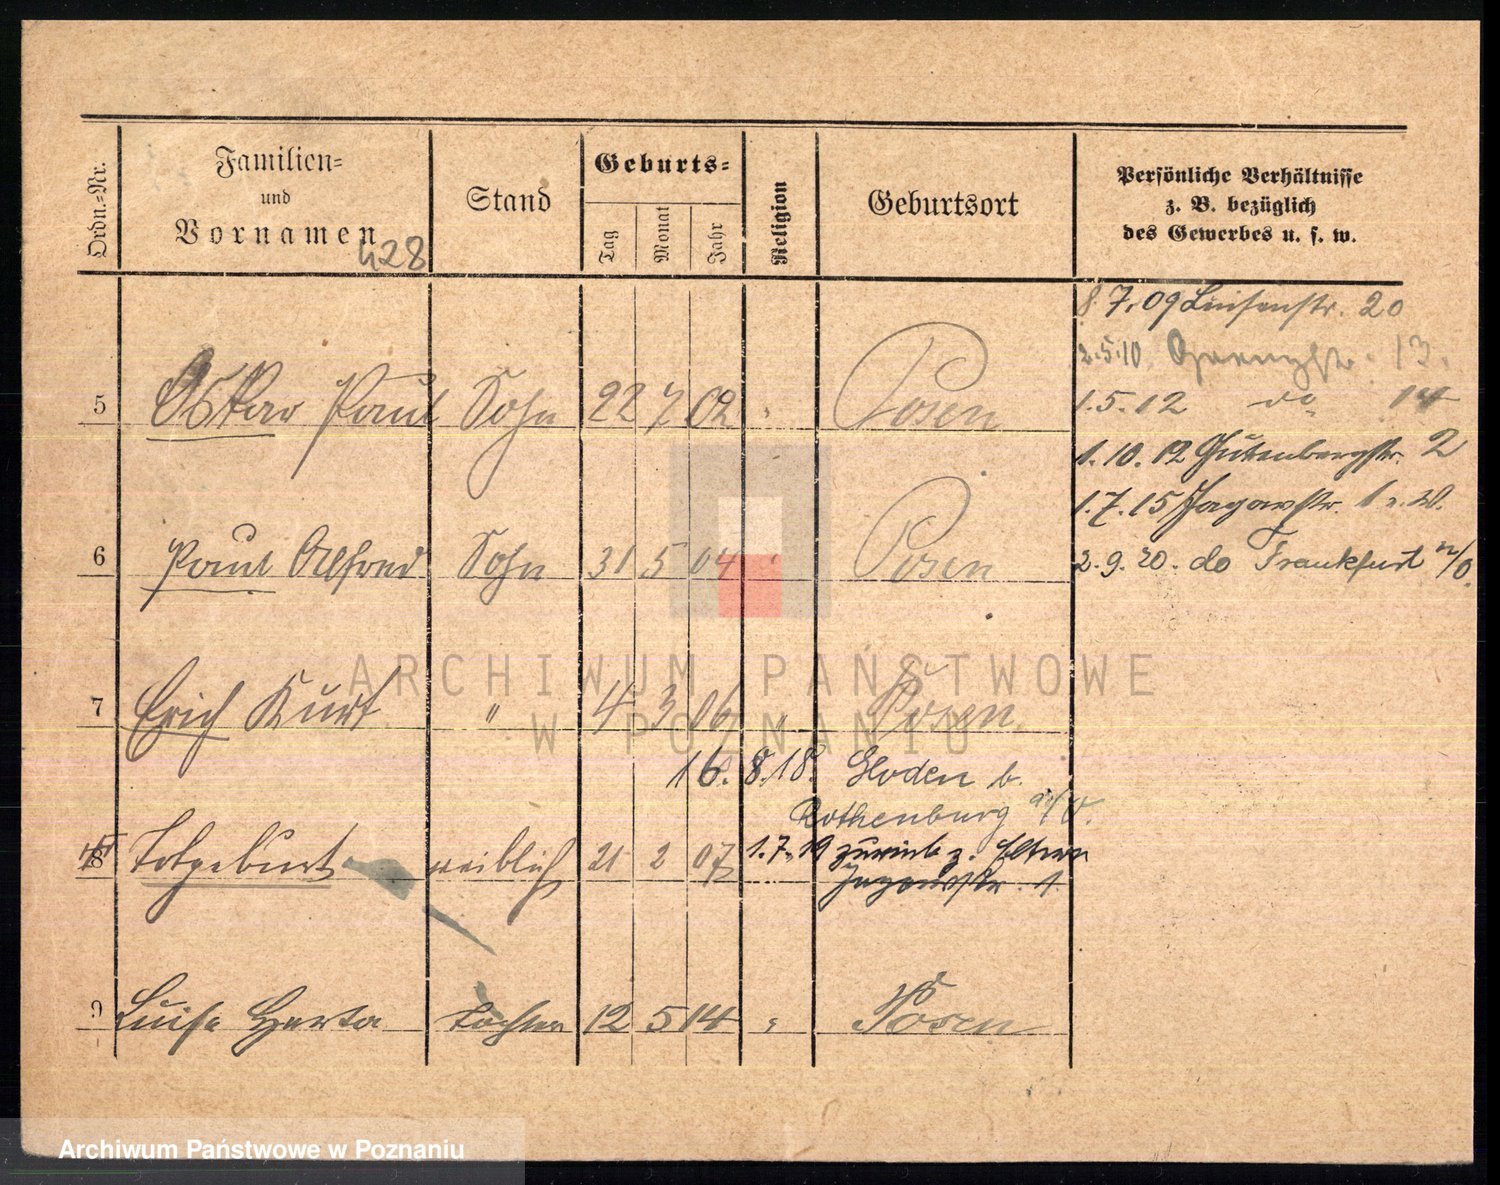 Ordn.-Nr.
Familien-
und
Vornamen
428
Stand
Geburts-
Tag
Monat
Jahr
Religion
Geburtsort
Persönliche Verhältnisse
z. B. bezüglich
des Gewerbes u. s. w.
8.7.09 Luisenstr. 20
2.5.10 13.
1.5.12 do 14
5 Oskar Paul Sohn 22 7 02 Posen
1.10.12 Gutenbergstr. 2
1.7.15 Jagowstr. 1
6 Paul Alfred Sohn 31 5 04 Posen
2.9.20. do Frankfurt a/O.
7 Erich Kurt " 4 3 06 " Posen
16.8.18. b.
Rothenburg a/O.
8 Totgeburt weiblich 21 2 07
1.7.19 zurück z. Eltern
Jagowstr. 1.
9 Luise Herta Tochter 12 5 14 " Posen
ARCHIWUM PAŃSTWOWE
W POZNANIU
Archiwum Państwowe w Poznaniu